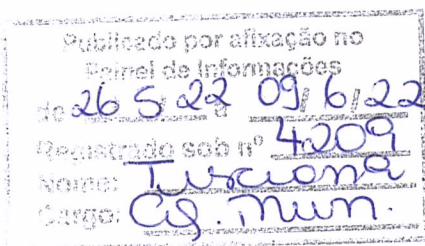 Publicado por afixação no
Painel de Informações
de 26/5/22 a 09/6/22
Registrado sob nº 4209
Nome: Tusciana
Cargo: Ag. Mun.